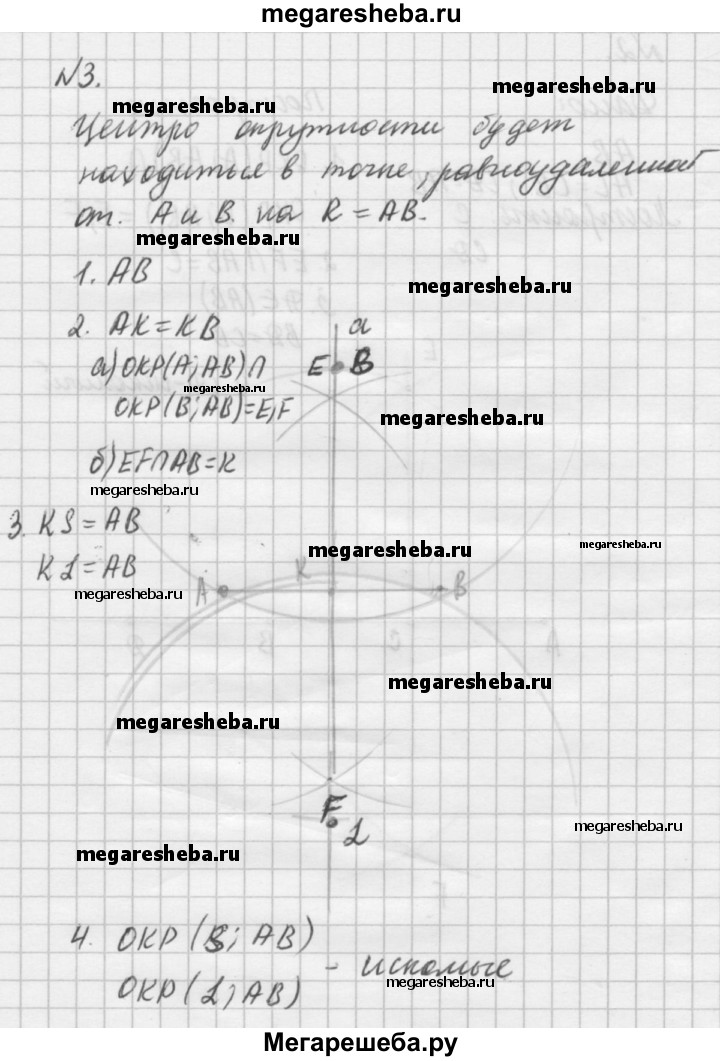 megaresheba.ru
N3.
megaresheba.ru
megaresheba.ru
Центро окружности будет
находиться в точке, равноудаленной
от. А и В. на R = AB.
megaresheba.ru
1. AB
2. AK = KB
a
а) ОКР(A; AB) ∩
E B
megaresheba.ru
ОКР(B; AB) = E, F
megaresheba.ru
б) EF ∩ AB = K
megaresheba.ru
3. KS = AB
megaresheba.ru
megaresheba.ru
K1 = AB
K
megaresheba.ru
A B
megaresheba.ru
megaresheba.ru
F
1
megaresheba.ru
megaresheba.ru
4. ОКР (S; AB)
ОКР (1; AB) - искомые
megaresheba.ru
Мегарешеба.ру